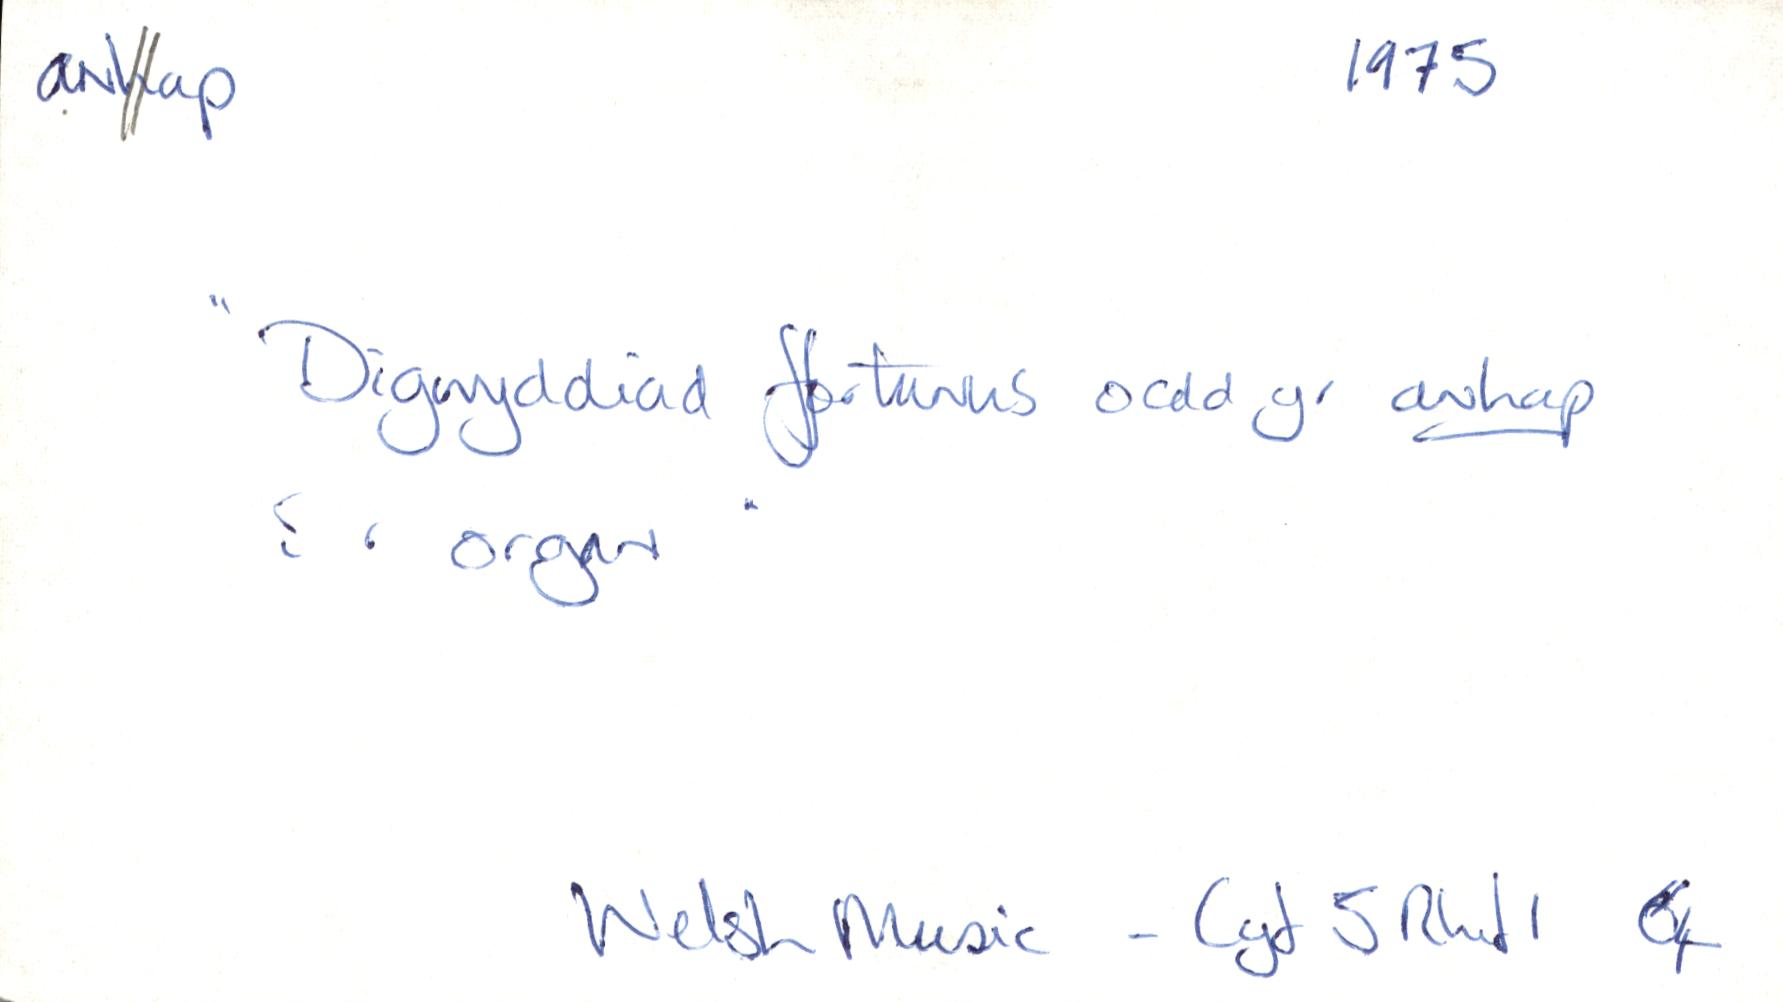 anhap 1975
"Digwyddiad ffortunus oedd yr anhap
i'r organ"
Welsh Music - Cyf 5 Rhif 1